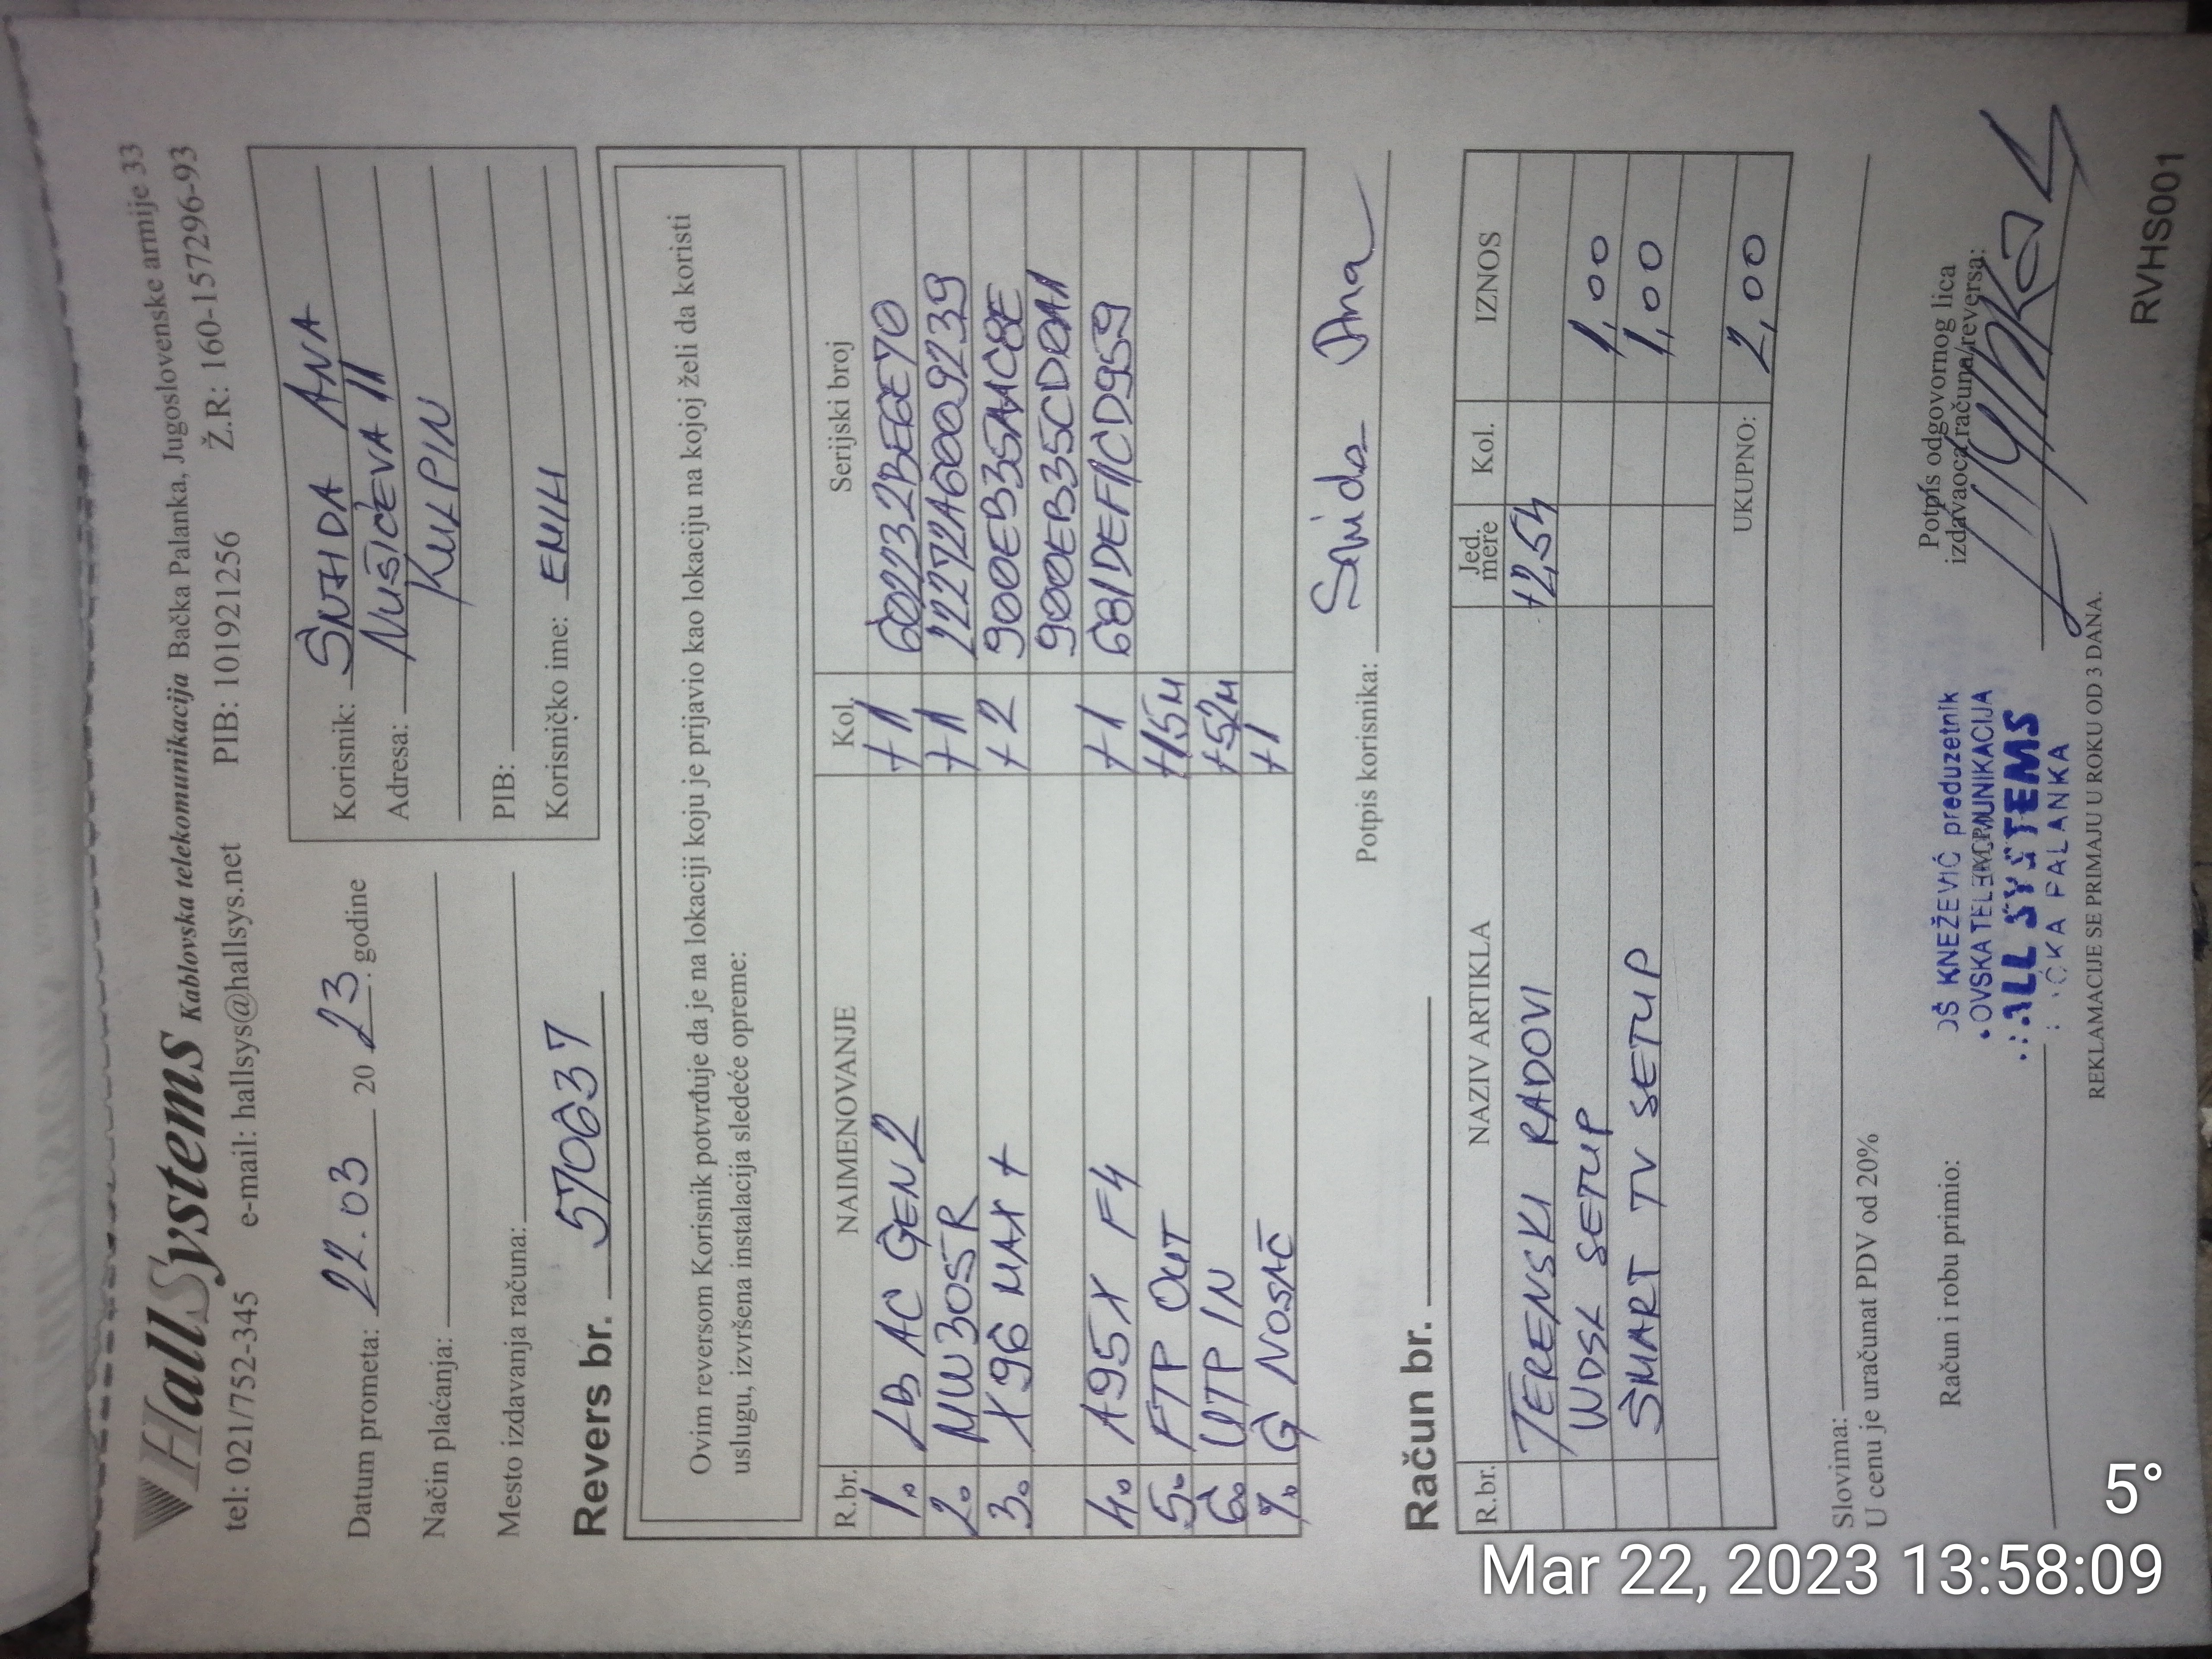 HallSystems Kablovska telekomunikacija Bačka Palanka, Jugoslovenske armije 33
tel: 021/752-345 e-mail: hallsys@hallsys.net PIB: 101921256 Ž.R.: 160-157296-93
Datum prometa: 22.03 20 23. godine
Način plaćanja:
Mesto izdavanja računa:
Korisnik: ŠNJIDA ANA
Adresa: NUŠIĆEVA 11
KULPIN
PIB:
Korisničko ime: EMIH
Revers br. 570637
Ovim reversom Korisnik potvrđuje da je na lokaciji koju je prijavio kao lokaciju na kojoj želi da koristi
uslugu, izvršena instalacija sledeće opreme:
R.br. NAIMENOVANJE Kol. Serijski broj
1. LB AC GEN2 +1
2. MW305R +1 22272A6009239
3. X96 MAX+ +2 900EB35AAC8E
900EB35CD0A1
4. A95X F4 +1 681DEF1CD959
5. FTP OUT +15M
6. UTP IN +52M
7. G NOSAČ +1
Potpis korisnika: Šnida Ana
Račun br.
R.br. NAZIV ARTIKLA Jed. mere Kol. IZNOS
TERENSKI RADOVI +2,5H
WDSL SETUP 1,00
SMART TV SETUP 1,00
UKUPNO: 2,00
Slovima:
U cenu je uračunat PDV od 20%
Račun i robu primio:
Potpis odgovornog lica
izdavaoca računa/reversa:
OŠ KNEŽEVIĆ preduzetnik
ALL SYSTEMS
ČKA PALANKA
REKLAMACIJE SE PRIMAJU U ROKU OD 3 DANA.
RVHS001
5°
Mar 22, 2023 13:58:09